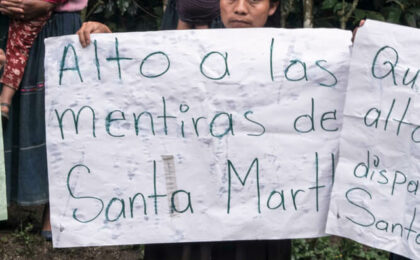 Alto a las
mentiras de
Santa Mart
Qu
alto
dispa
Santa